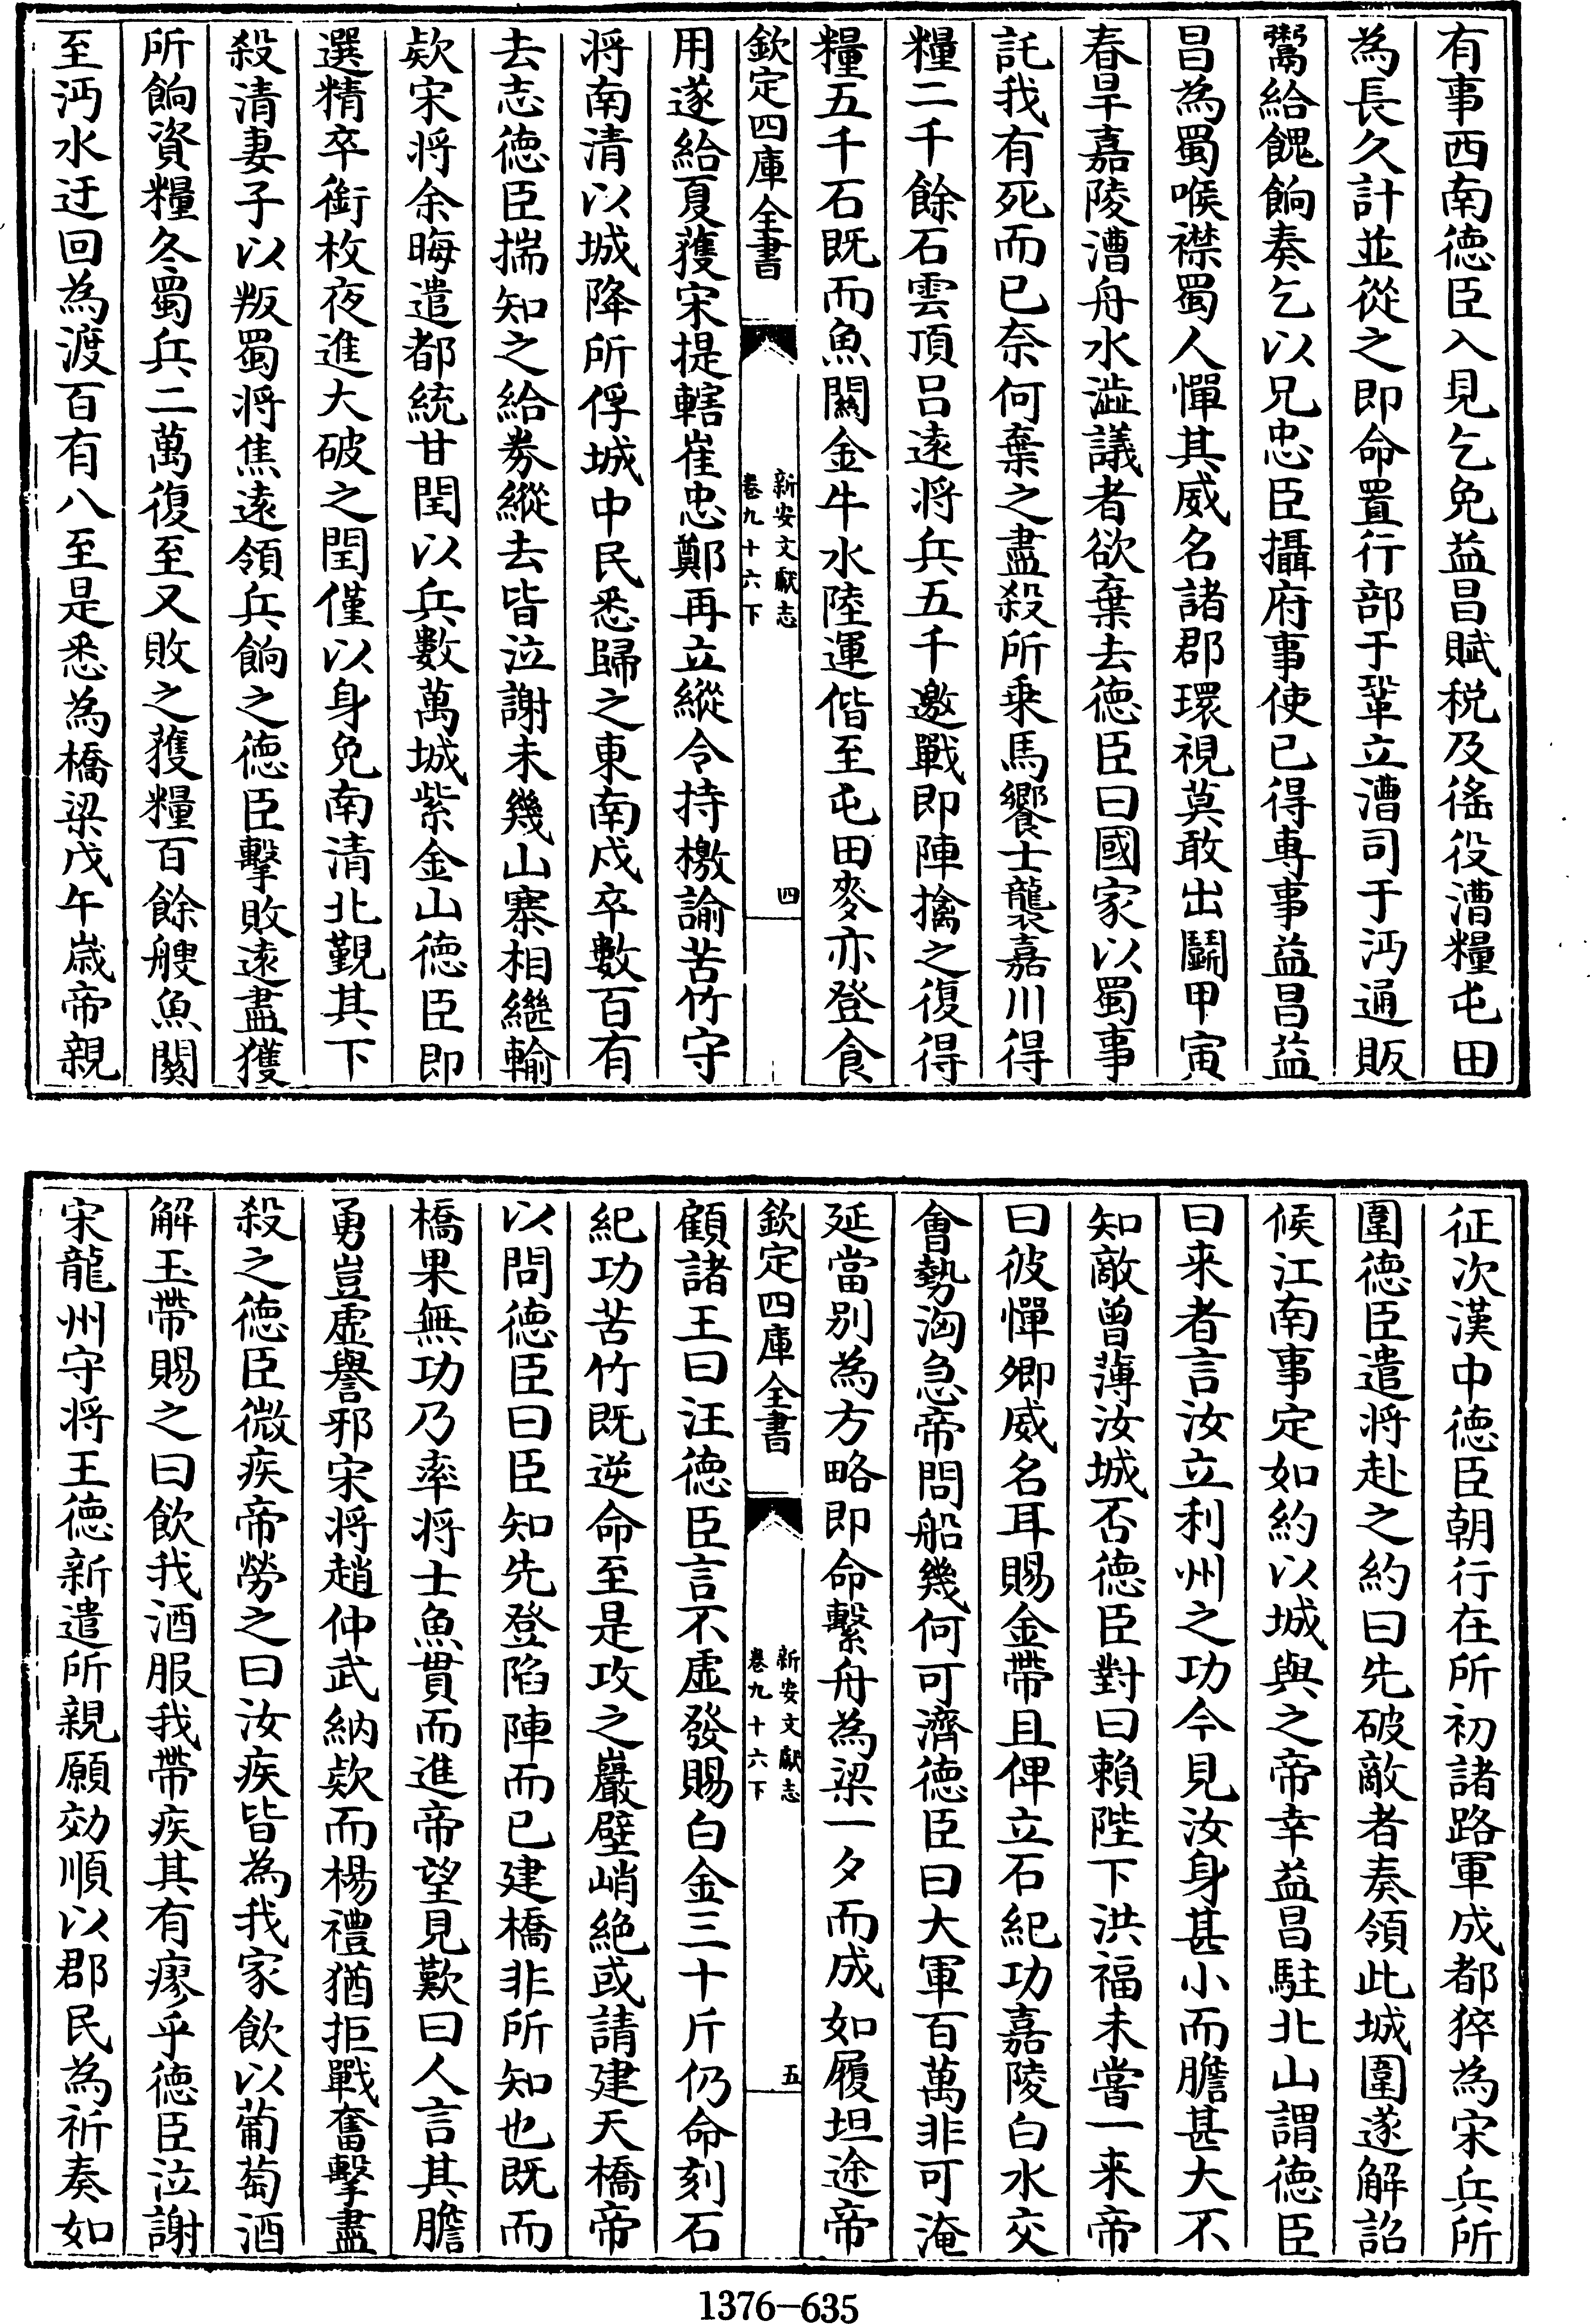 有事西南徳臣入見乞免益昌賦税及徭役漕糧屯田
為長久計並從之即命置行部于鞏立漕司于沔通販
鬻給餽餉奏乞以兄忠臣攝府事使已得專事益昌益
昌為蜀喉襟蜀人憚其威名諸郡環視莫敢出鬭甲寅
春旱嘉陵漕舟水澁議者欲棄去徳臣曰國家以蜀事
託我有死而已奈何棄之盡殺所乗馬饗士襲嘉川得
糧二千餘石雲頂吕逺将兵五千邀戰即陣擒之復得
糧五千石既而魚關金牛水陸運偕至屯田麥亦登食
欽定四庫全書
新安文獻志
卷九十六下
四
用遂給夏獲宋提轄崔忠鄭再立縱令持檄諭苦竹守
将南清以城降所俘城中民悉歸之東南戍卒數百有
去志徳臣揣知之給劵縱去皆泣謝未幾山寨相繼輸
欵宋将余晦遣都統甘閏以兵數萬城紫金山徳臣即
選精卒銜枚夜進大破之閏僅以身免南清北覲其下
殺清妻子以叛蜀将焦逺領兵餉之徳臣擊敗逺盡獲
所餉資糧冬蜀兵二萬復至又敗之獲糧百餘艘魚關
至沔水迂回為渡百有八至是悉為橋梁戊午歳帝親
征次漢中徳臣朝行在所初諸路軍成都猝為宋兵所
圍徳臣遣将赴之約曰先破敵者奏領此城圍遂解詔
候江南事定如約以城與之帝幸益昌駐北山謂徳臣
曰来者言汝立利州之功今見汝身甚小而膽甚大不
知敵曽薄汝城否徳臣對曰賴陛下洪福未嘗一来帝
曰彼憚卿威名耳賜金帶且俾立石紀功嘉陵白水交
會勢洶急帝問船幾何可濟徳臣曰大軍百萬非可淹
延當别為方略即命繫舟為梁一夕而成如履坦途帝
欽定四庫全書
新安文獻志
卷九十六下
五
顧諸王曰汪徳臣言不虚發賜白金三十斤仍命刻石
紀功苦竹既逆命至是攻之巖壁峭絶或請建天橋帝
以問徳臣曰臣知先登陷陣而已建橋非所知也既而
橋果無功乃率将士魚貫而進帝望見歎曰人言其膽
勇豈虚譽邪宋将趙仲武納欵而楊禮猶拒戰奮擊盡
殺之徳臣微疾帝勞之曰汝疾皆為我家飲以葡萄酒
解玉帶賜之曰飲我酒服我帶疾其有瘳乎徳臣泣謝
宋龍州守将王徳新遣所親願効順以郡民為祈奏如
1376—635